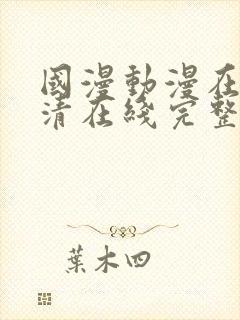 國漫動漫在
清在綫完整
葉木四